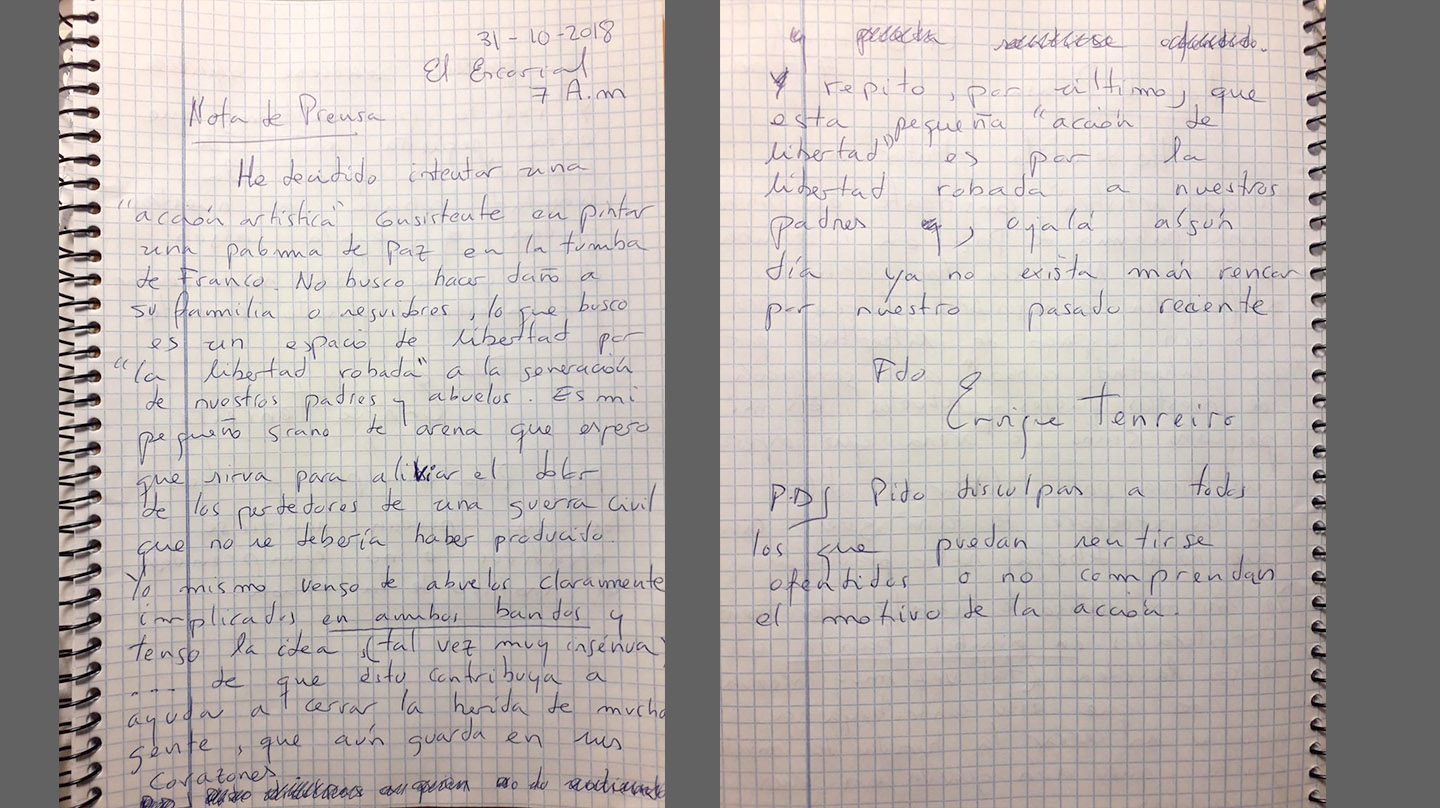 31-10-2018
El Escorial
7 A.m
Nota de Prensa
He decidido intentar una
"acción artística" consistente en pintar
una paloma de Paz en la tumba
de Franco. No busco hacer daño a
su familia o seguidores, lo que busco
es un espacio de libertad por
"la libertad robada" a la generación
de nuestros padres y abuelos. Es mi
pequeño grano de arena que espero
que sirva para aliviar el dolor
de los perdedores de una guerra civil
que no se debería haber producido.
Yo mismo vengo de abuelos claramente
implicados en ambos bandos y
tengo la idea, (tal vez muy ingénua)
.... de que ésto contribuya a
ayudar a cerrar la herida de mucha
gente, que aún guarda en sus
corazones
Y repito, por último, que
esta pequeña "acción de
libertad" es por la
libertad robada a nuestros
padres, ojalá algún
día ya no exista más rencor
por nuestro pasado reciente
Fdo
Enrique Tenreiro
P.D. Pido disculpas a todos
los que puedan sentirse
ofendidos o no comprendan
el motivo de la acción.